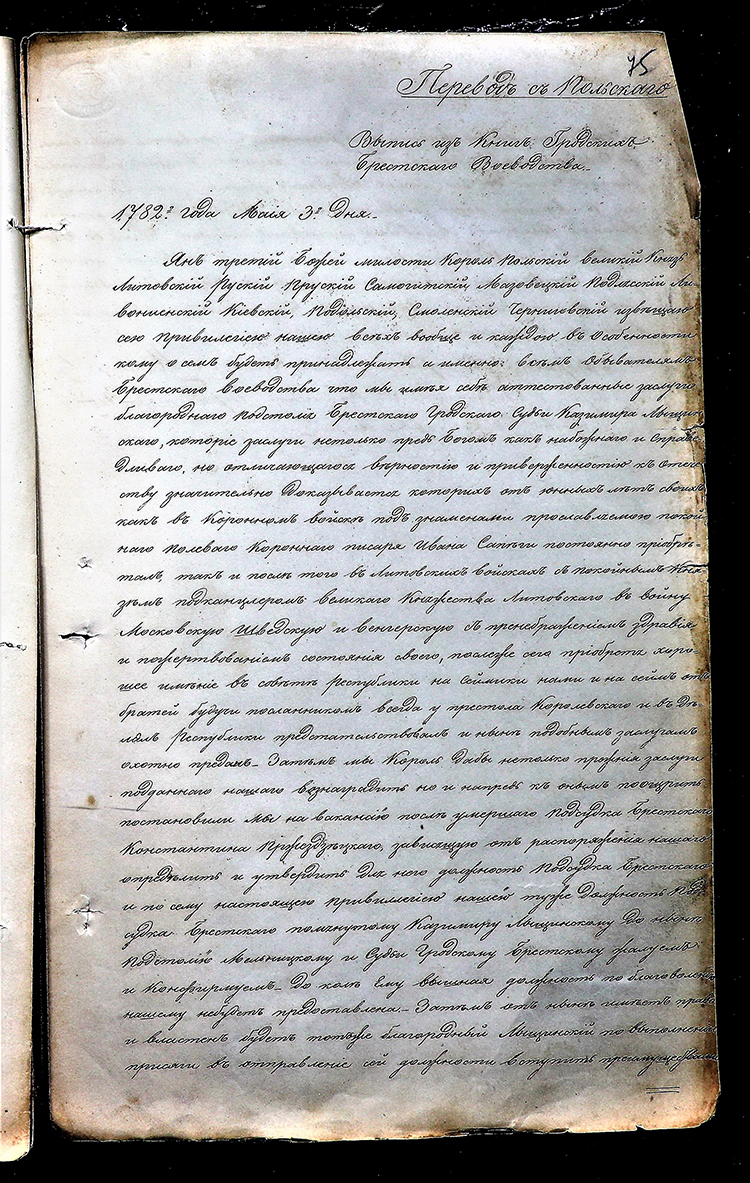 75
Переводъ съ Польскаго
Выпись изъ Книгъ Гродскихъ
Брестскаго Воеводства.
1782г. года Маія 3г. Дня.
Янъ третій Божей милости Король Польскій великій Князь
Литовскій Рускій Прускій Самогитскій, Мазовецкій Подляскій Ли-
вонienскій Кіевскій, Подольскій, Смоленскій Черниговскій извѣщаю
сею привилегіею нашею всѣхъ вообще и каждого въ особенности
кому о семъ будетъ принадлежать а именно: всѣмъ Обывателямъ
Брестскаго Воеводства что мы имѣя себѣ аттестованные заслуги
благороднаго подстолія Брестскаго Гродскаго Судьи Казимира Мыщин-
скаго, которіе заслуги нетолько предъ Богомъ какъ набожнаго и справе-
дливаго, но отличающагося вѣрностію и приверженностію къ отече-
ству значительно доказывается которыхъ отъ юнныхъ лѣтъ своихъ
какъ въ Коронномъ войскѣ подъ знаменами прославляемою покой-
наго полеваго Короннаго писаря Ивана Сапѣги постоянно пріобрѣ-
талъ, такъ и послѣ того въ Литовскихъ войскахъ съ покойнымъ Кня-
земъ подканцлеромъ великаго Княжества Литовскаго въ войну
Московскую Шведскую и венгерскую съ пренебраженіемъ здравія
и пожертвованіемъ состоянія своего, послѣже сего пріобретя хоро-
шее имѣніе въ совѣтѣ республики на сеймики нами и на сеймъ отъ
братей будучи посланникомъ всегда у престола Королевскаго и въ Дѣ-
лахъ республики предстательствовалъ и нынѣ подобнымъ заслугамъ
охотно преданъ. Затѣмъ мы Король дабы нетолько прежнія заслуги
подданнаго нашаго вознаградить но и напредь къ онымъ поощрить
постановили мы на ваканcію послѣ умершаго Подсудка Брестскаго
Константина Пржездзѣцкаго, зависящую отъ распоряженія нашаго
опредѣлить и утвердить для него должность Подсудка Брестскаго
и по сему настоящею привилегіею нашею туже Должность Под-
судка Брестскаго помянутому Казимиру Мыщинскому до нынѣ
Подстолію Мельницкому и Судьи Гродскому Брестскому жалуемъ
и Конфирмуемъ. До колѣ Ему высшая должность по благоволенію
нашему небудетъ предоставлена. Затѣмъ отъ нынѣ имѣетъ право
и властенъ будетъ тотъже благородный Мыщинскій по выполненіи
присяги въ отправленіе сей должности вступить преимуществами